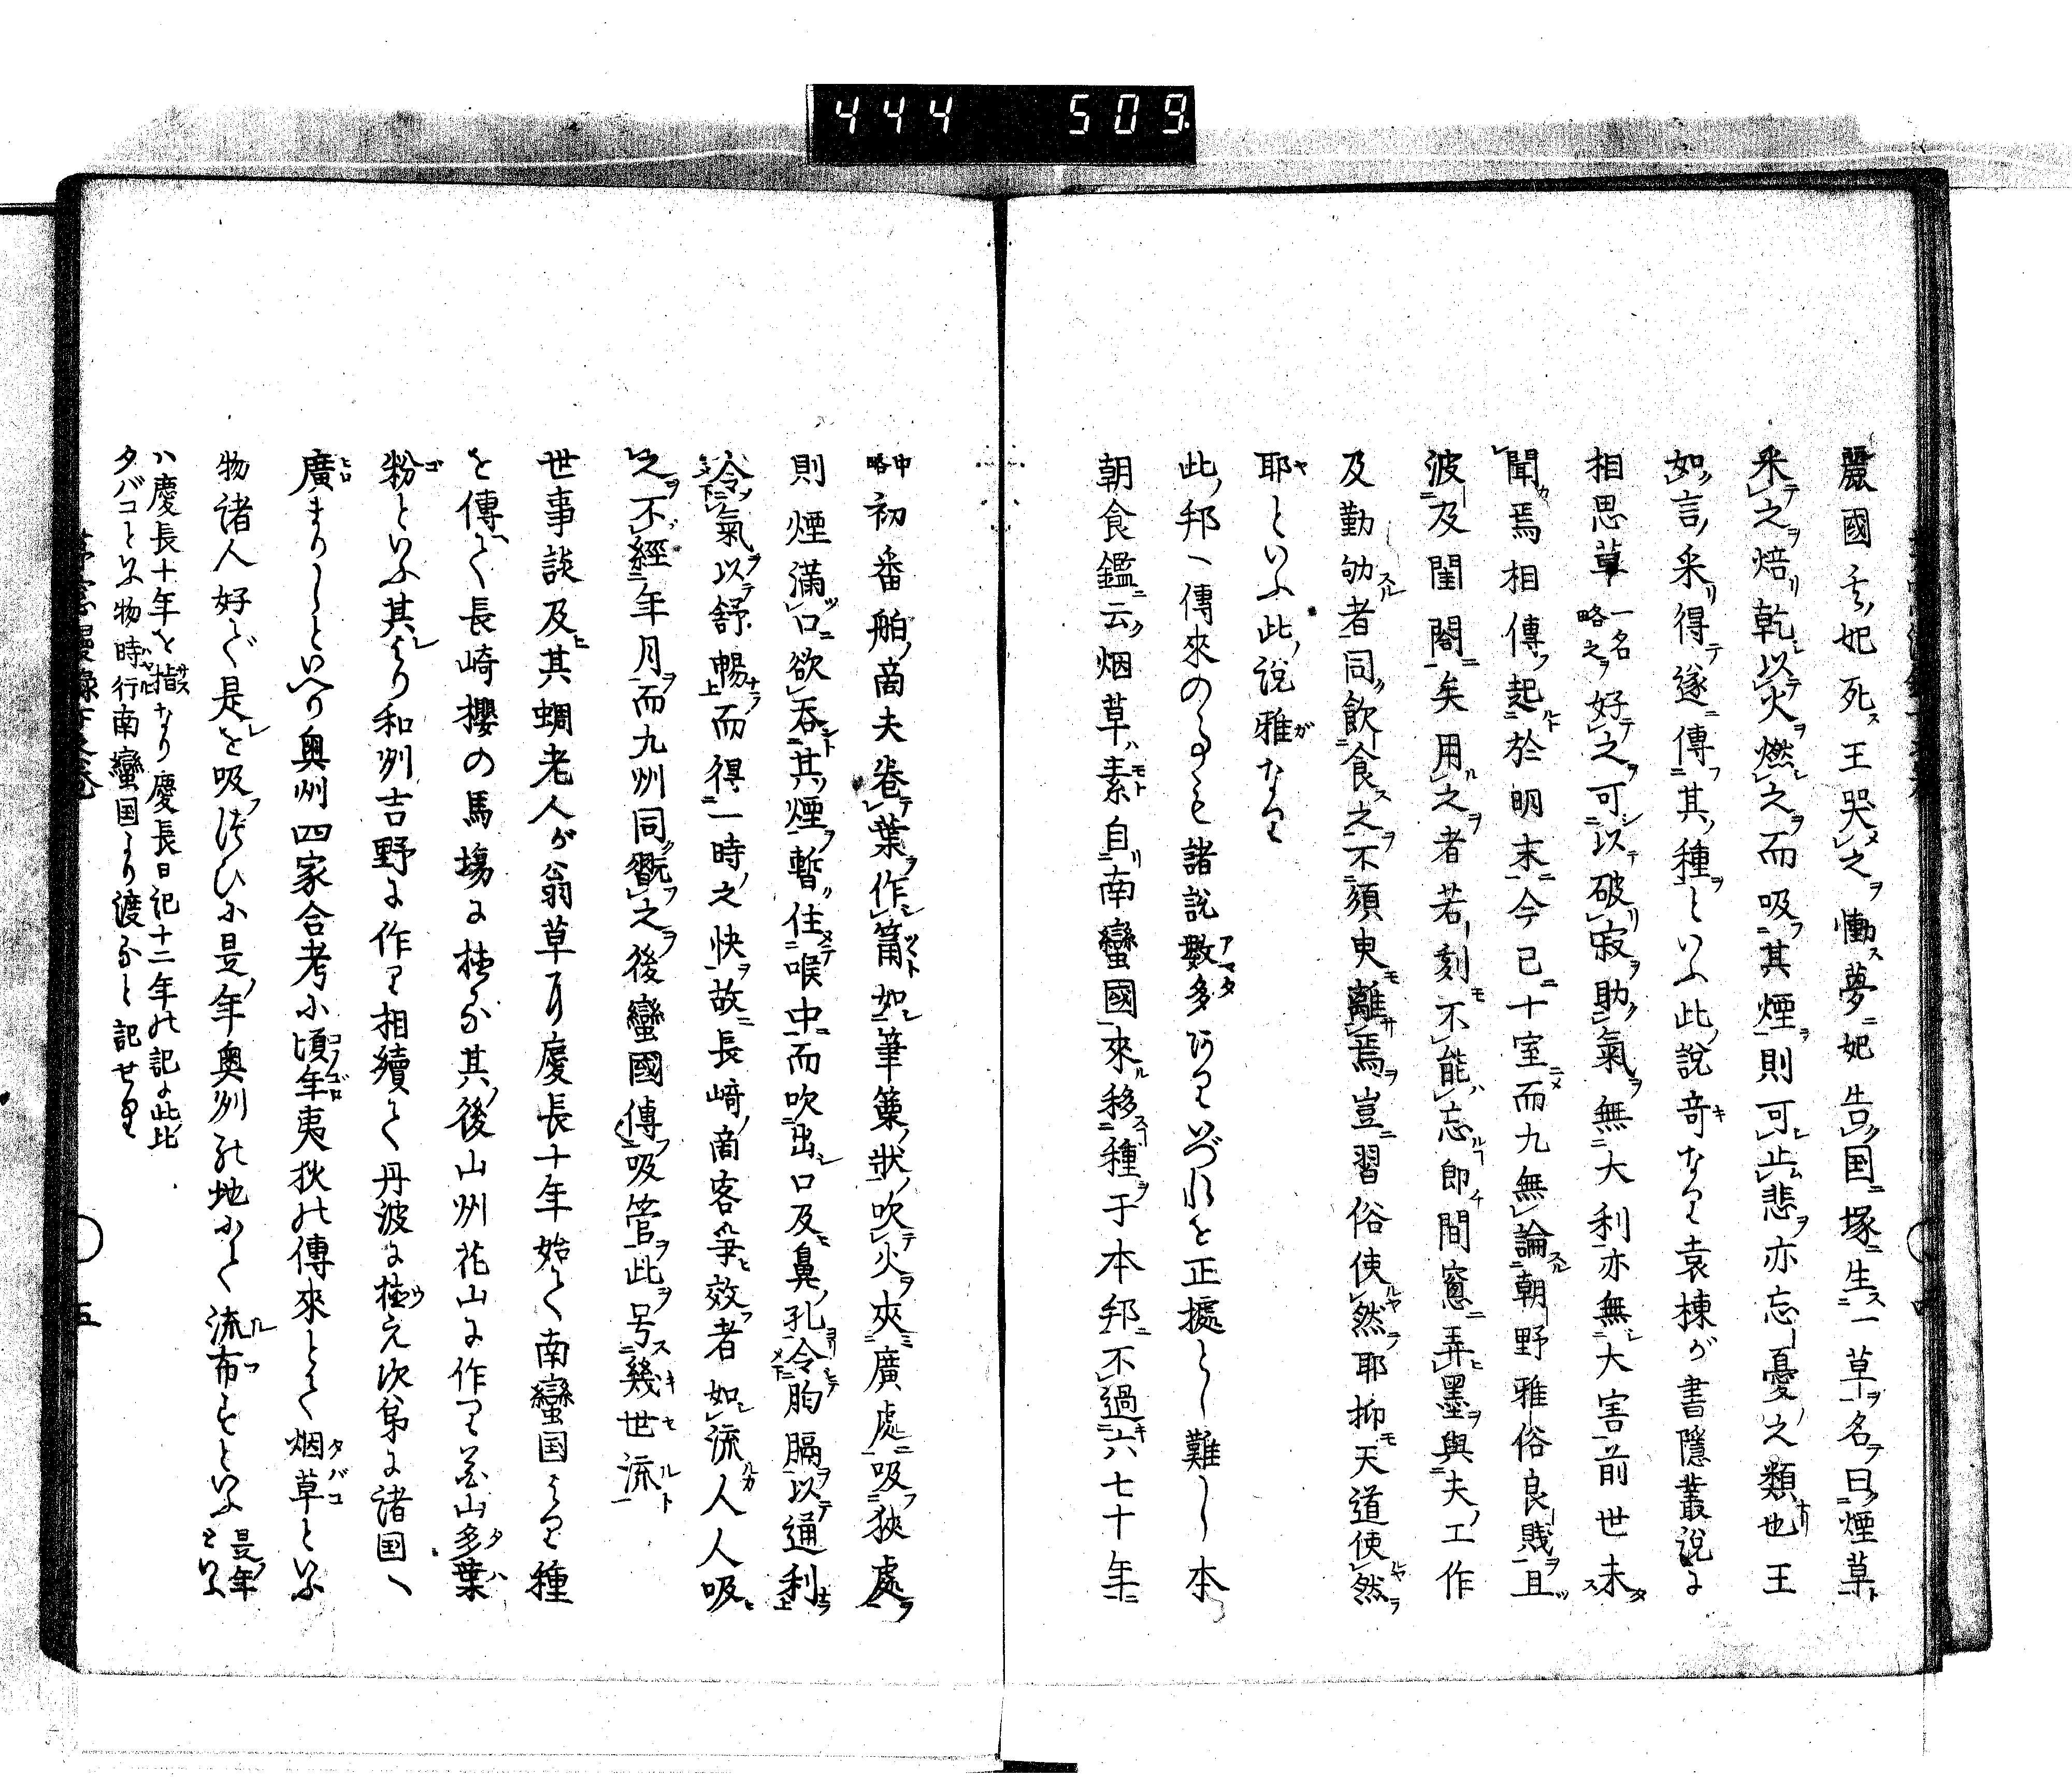 444 509
麗國ノ妃死ス王哭之ヲ慟ス夢ニ妃告国ニ塚ニ生ス一草ヲ名ヲ曰煙草ト
采テ之ヲ焙リ乾シ以テ火ヲ燃シ之ヲ而吸フ其煙ヲ則可止ム悲ヲ亦忘憂ノ之類也王
如ノ言ノ采リ得テ遂ニ傳フ其ノ種ヲといふ此ノ説奇キなり袁棟が書隱叢説に
相思草一名略之ヲ好テ之ヲ可シ以テ破リ寂ヲ助ク氣ヲ無大利亦無シ大害前世未タ
聞カ焉相傳フ起ルト於明末ニ今已ニ十室ニメ而九無論スル朝野雅俗良賤ヲ且ツ
波及閨閤ニ矣用ル之ヲ者若刻モ不能ハ忘ルヿ即チ間窓ニ弄ヒ墨ヲ與夫ノ工作
及勤劬スル者同ク飲食ス之ヲ不須臾モ離サ焉ヲ豈ニ習俗使ルヤ然ラ耶抑モ天道使ルヤ然ラ
耶ヤといふ此ノ説雅ガなり
此ノ邦へ傳來のことも諸説數多アマタありいづれを正據とし難し本
朝食鑑ニ云ク烟草ハ素モト自リ南蠻國來ル移スヿ種ヲ于本邦ニ不過キ六七十年ニ
中略初番舶ノ商夫巻テ葉ヲ作シ筩ツヽト如シ筆篥ノ狀ノ吹テ火ヲ夾ミ廣處ニ吸フ狹處ヲ
則煙滿ツ口ニ欲呑ント其ノ煙ヲ暫ク住メテ喉中ニ而吹出シ口及ヒ鼻ノ孔ヨリ令メ胸膈ヲ以テ通利
冷氣ヲ以テ舒暢ナラ而得一時ノ之快ヲ故ニ長崎ノ商客爭ヒ效フ者如シ流ルカ人人吸ヒ
之ヲ不經年月ヲ而九州同ク翫フ之ヲ後蠻國傳フ吸管ヲ此ヲ号スキセルト幾世流
世事談及ヒ其蜩老人が翁草ニ慶長十年始て南蠻国より種
を傳へて長崎櫻の馬塲に植る其ノ後山州花山に作り花山多葉タハ
粉ゴといふ其レより和州吉野に作り相續て丹波に植ウえ次第に諸国へ
廣ヒロまりしといへり奥州四家合考に頃年コノゴロ夷狄の傳來とて烟草タバコといふ
物諸人好で是レを吸フ流ひに是ノ年奥州の地にて流布ルフすといふ是ノ年といふ
ハ慶長十年を指サスなり慶長日記十二年の記に此ノ比
タバコといふ物時行ハヤル南蠻国より渡ると記せり
五